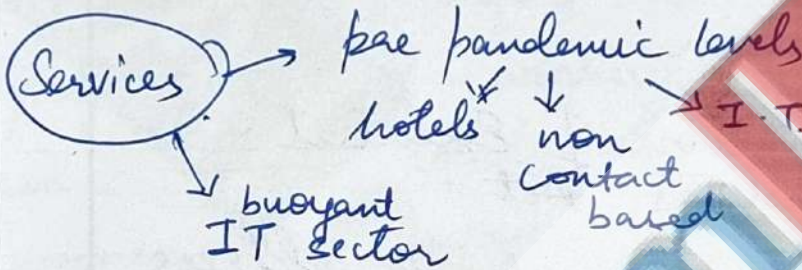 Services
pre pandemic levels
hotels
non
contact
based
I.T.
buoyant
IT sector